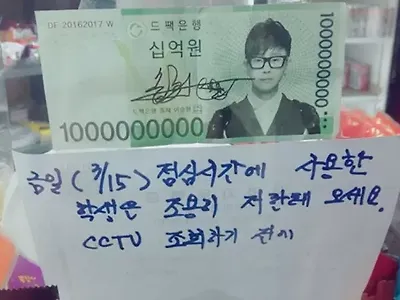 DF 20162017 W
드팩은행
십억원
1000000000
1000000000
금일(3/15) 점심시간에 사용한
학생은 조용히 저한테 오세요.
CCTV 조회하기 전에